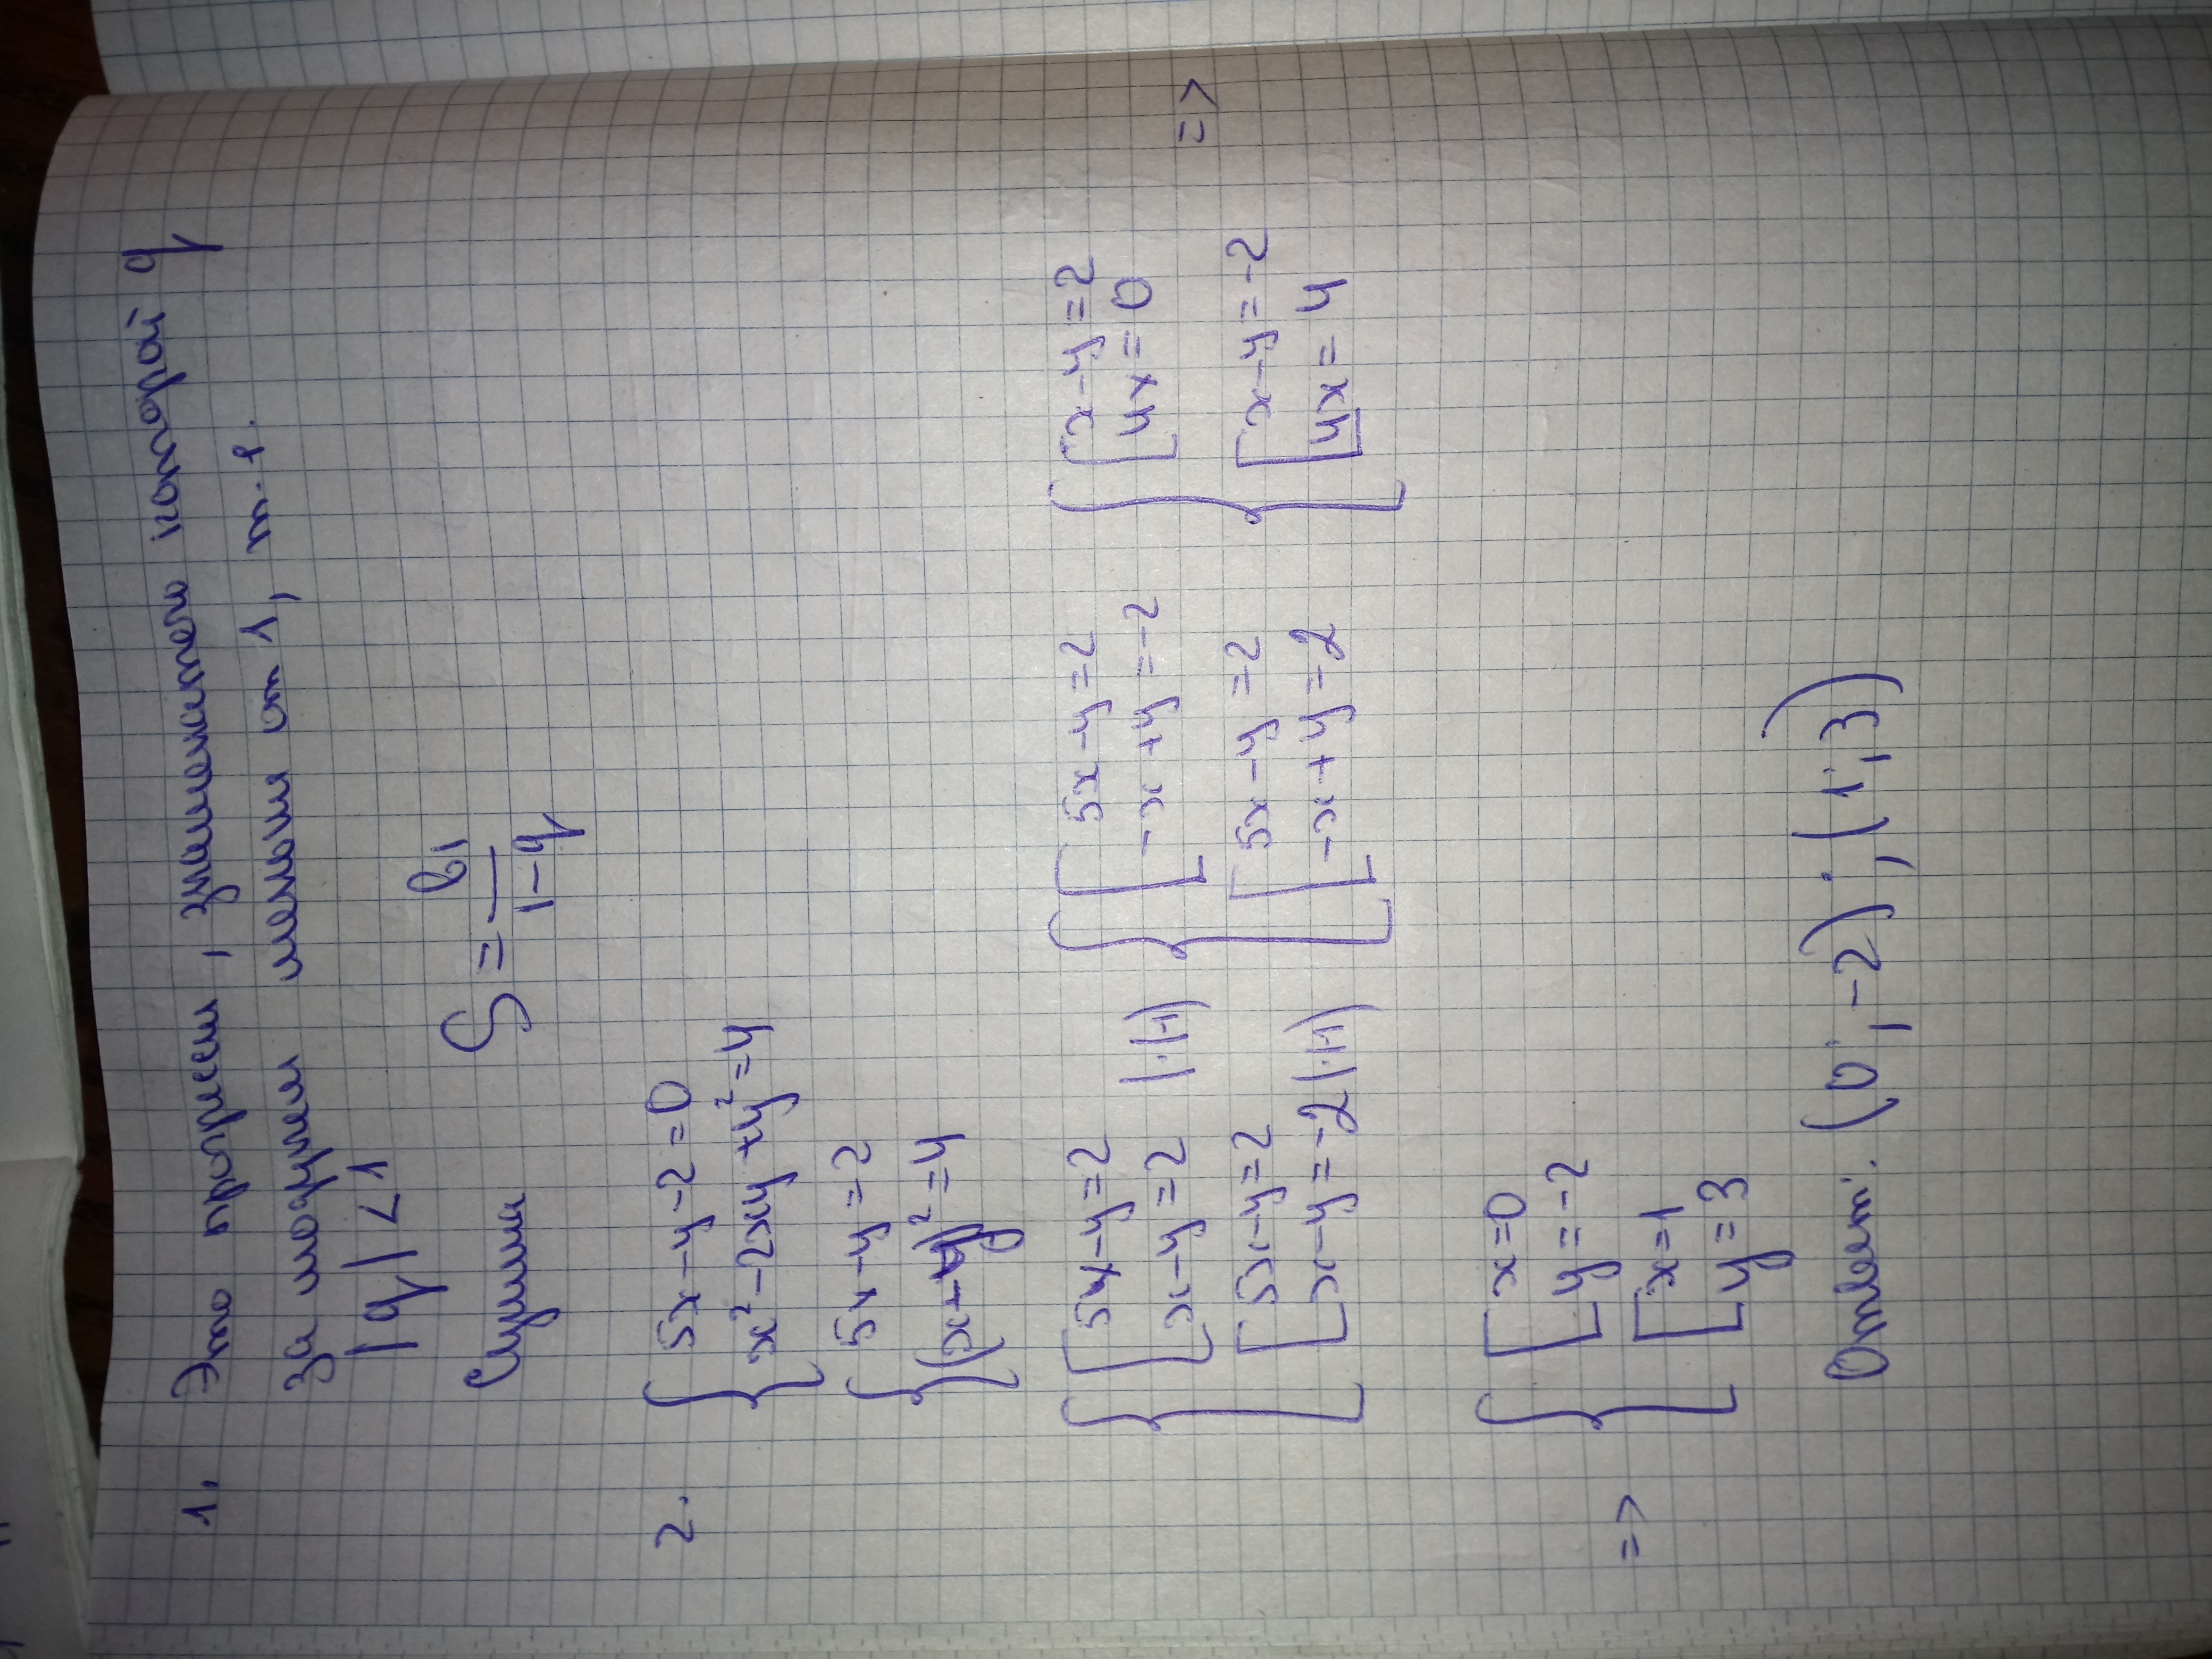 1. Это прогрессия, знаменатель которой q
за модулем меньше от 1, т.е.
|q| < 1
Сумма S = b₁/(1-q)
2. { 5x-y-2=0
x²-2xy+y²=4
{ 5x-y=2
(x-y)²=4
{ [ 5x-y=2 { [ 5x-y=2 { [ x-y=2
x-y=2 |·(-1) -x+y=-2 4x=0
[ 5x-y=2 [ 5x-y=2 [ x-y=-2 =>
x-y=-2 |·(-1) -x+y=2 4x=4
=> { [ x=0
y=-2
[ x=1
y=3
Ответ: (0;-2); (1;3)